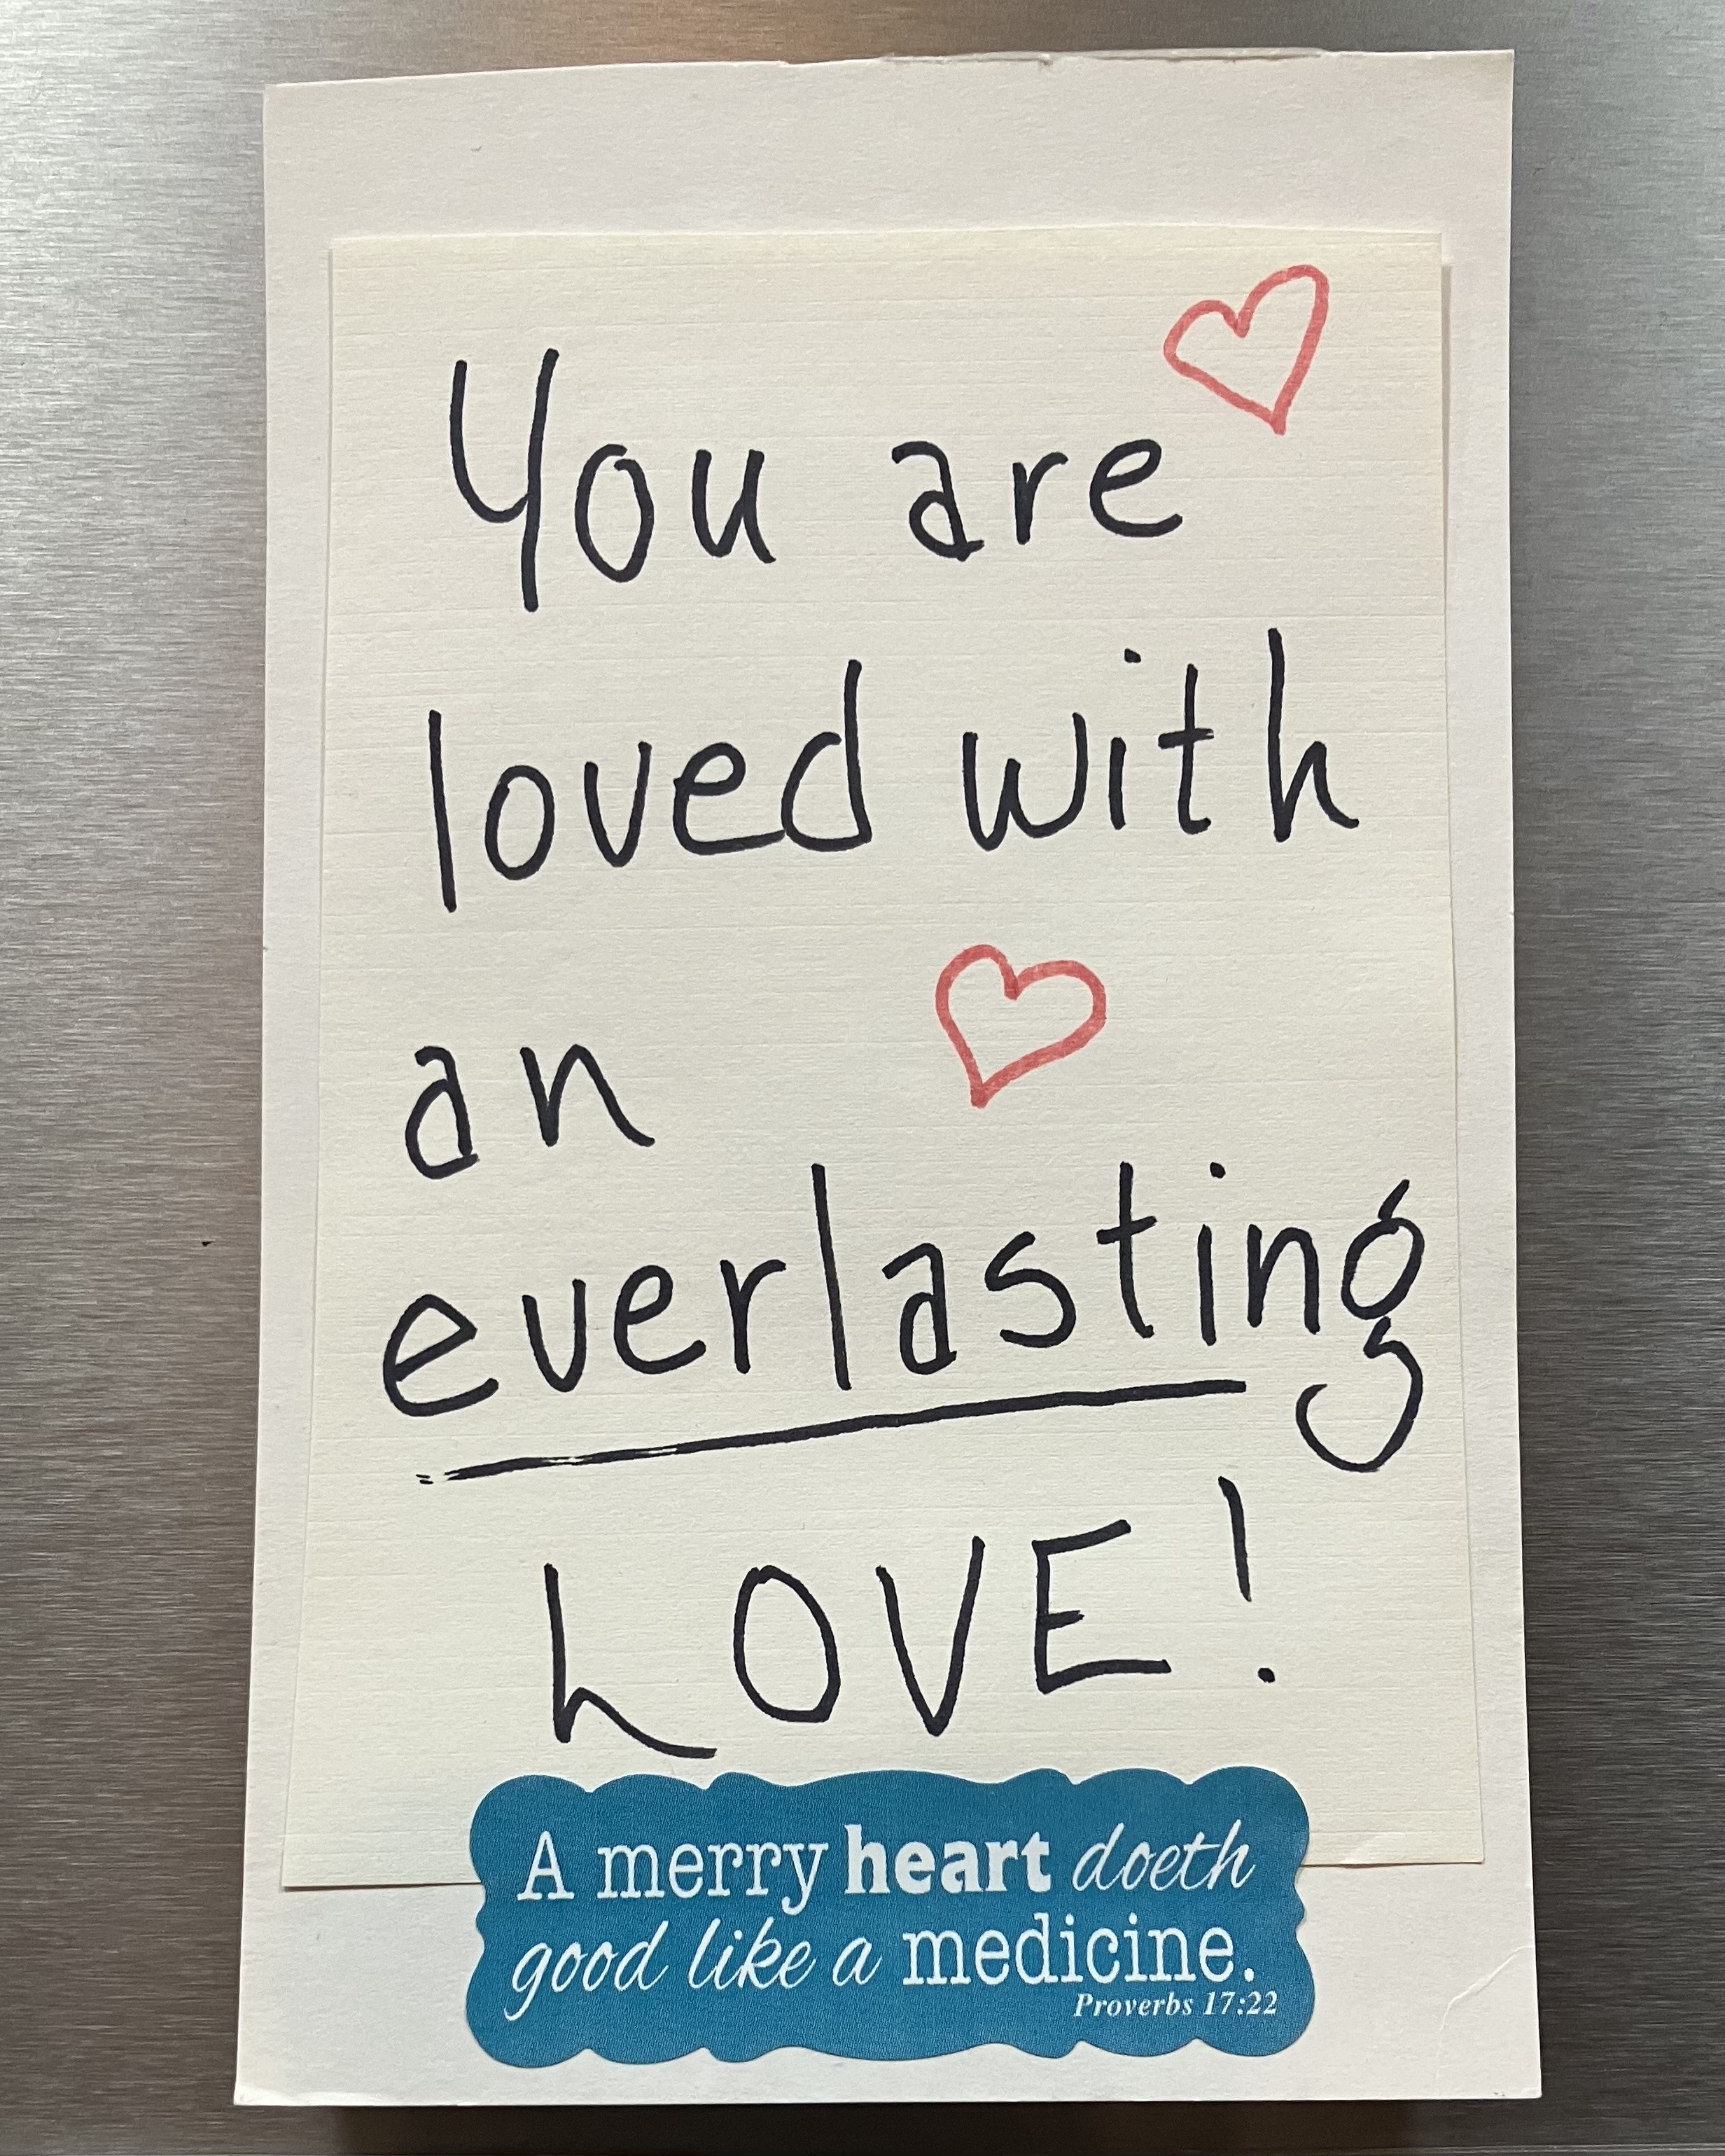 You are
loved with
an
everlasting
LOVE!
A merry heart doeth
good like a medicine.
Proverbs 17:22